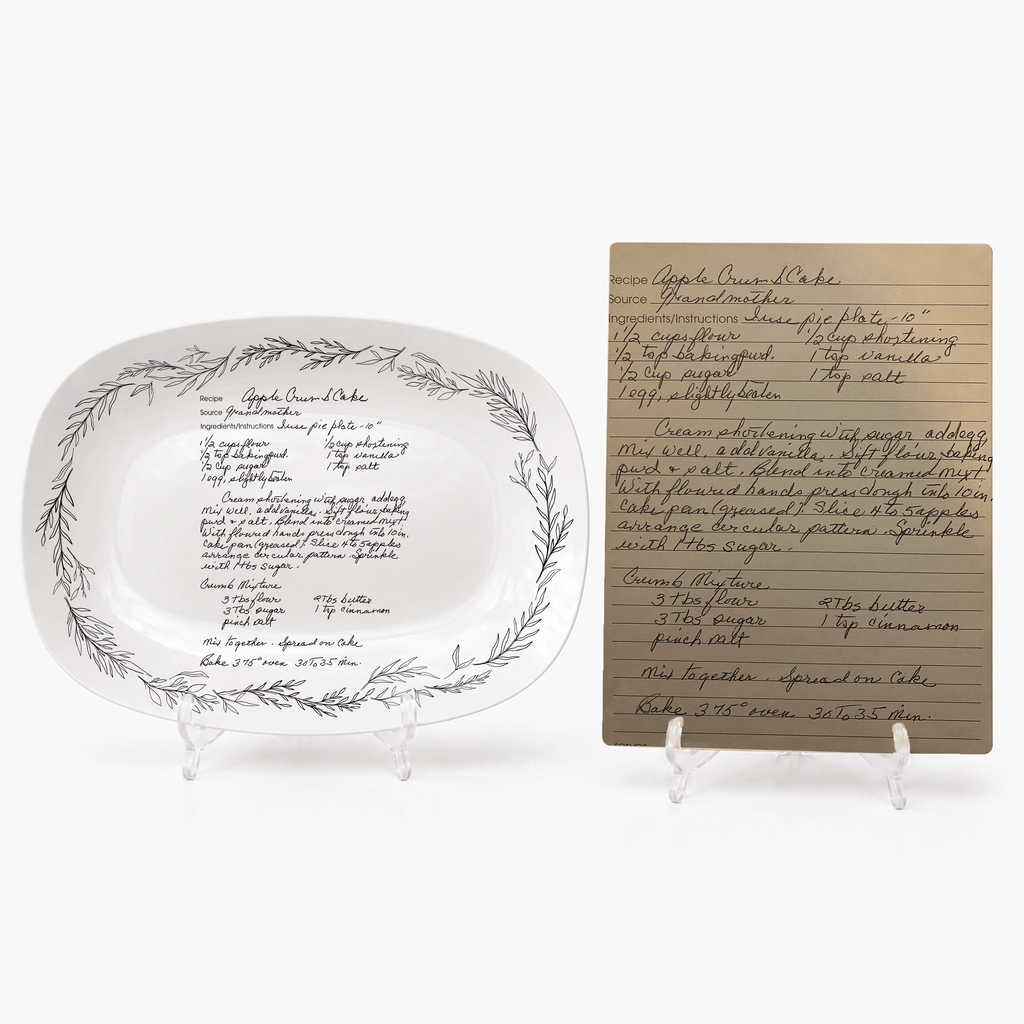 Recipe Apple Crum b Cake
Source Grandmother
Ingredients/Instructions I use pie plate - 10"
1 1/2 cups flour 1/2 cup shortening
1/2 tsp baking pwd. 1 tsp vanilla
1/2 cup sugar 1 tsp salt
1 egg, slightly beaten
Cream shortening with sugar, add egg,
Mix well, add vanilla. Sift flour, baking
pwd & salt. Blend into creamed mixt.
With floured hands press dough into 10 in.
cake pan (greased). Slice 4 to 5 apples
arrange circular pattern. Sprinkle
with 1 tbs sugar.
Crumb Mixture
3 tbs flour 2 Tbs butter
3 Tbs sugar 1 tsp cinnamon
pinch salt
Mix together. Spread on Cake
Bake 375° oven 30 To 35 Min.
Recipe Apple Crum b Cake
Source Grandmother
Ingredients/Instructions I use pie plate - 10"
1 1/2 cups flour 1/2 cup shortening
1/2 tsp baking pwd. 1 tsp vanilla
1/2 cup sugar 1 tsp salt
1 egg, slightly beaten
Cream shortening with sugar, add egg,
Mix well, add vanilla. Sift flour, baking
pwd & salt. Blend into creamed mixt.
With floured hands press dough into 10 in.
cake pan (greased). Slice 4 to 5 apples
arrange circular pattern. Sprinkle
with 1 tbs sugar.
Crumb Mixture
3 tbs flour 2 Tbs butter
3 Tbs sugar 1 tsp cinnamon
pinch salt
Mix together. Spread on Cake
Bake 375° oven 30 To 35 Min.